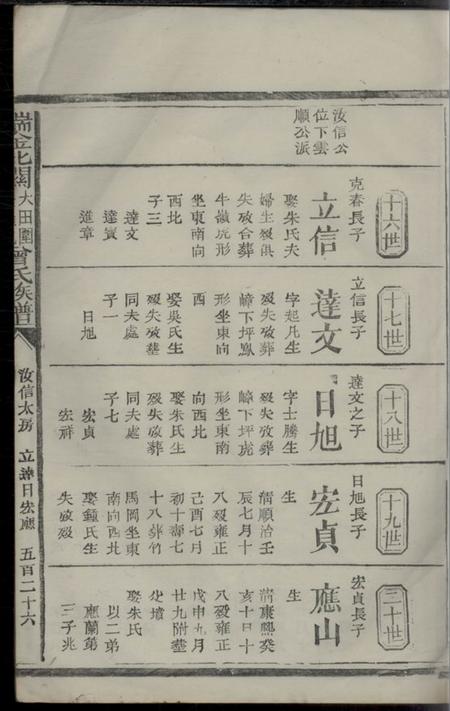 汝信公
位下雲
順公派
十六世
克春長子
立信
娶朱氏夫
婦生歿俱
失攷合葬
牛嶺坑形
坐東南向
西北
子三
達文
達賓
進章
十七世
立信長子
達文
字起凡生
歿失攷葬
嶂下坪鳳
形坐東向
西
娶吳氏生
歿失攷葬
同夫處
子一
日旭
十八世
達文之子
日旭
字士騰生
歿失攷葬
嶂下坪虎
形坐東南
向西北
娶朱氏生
歿失攷葬
同夫處
子七
宏貞
宏祥
十九世
日旭長子
宏貞
生
清順治壬
辰七月十
八歿雍正
己酉七月
初十壽七
十八葬竹
馬岡坐東
南向西北
娶鍾氏生
失攷歿
二十世
宏貞長子
應山
生
清康熙癸
亥十月十
八歿雍正
戊申九月
廿九附葬
父墳
娶朱氏
以二弟
應蘭第
三子兆
瑞金北關大田圍曾氏族譜
汝信太房 立達日宏應 五百二十六